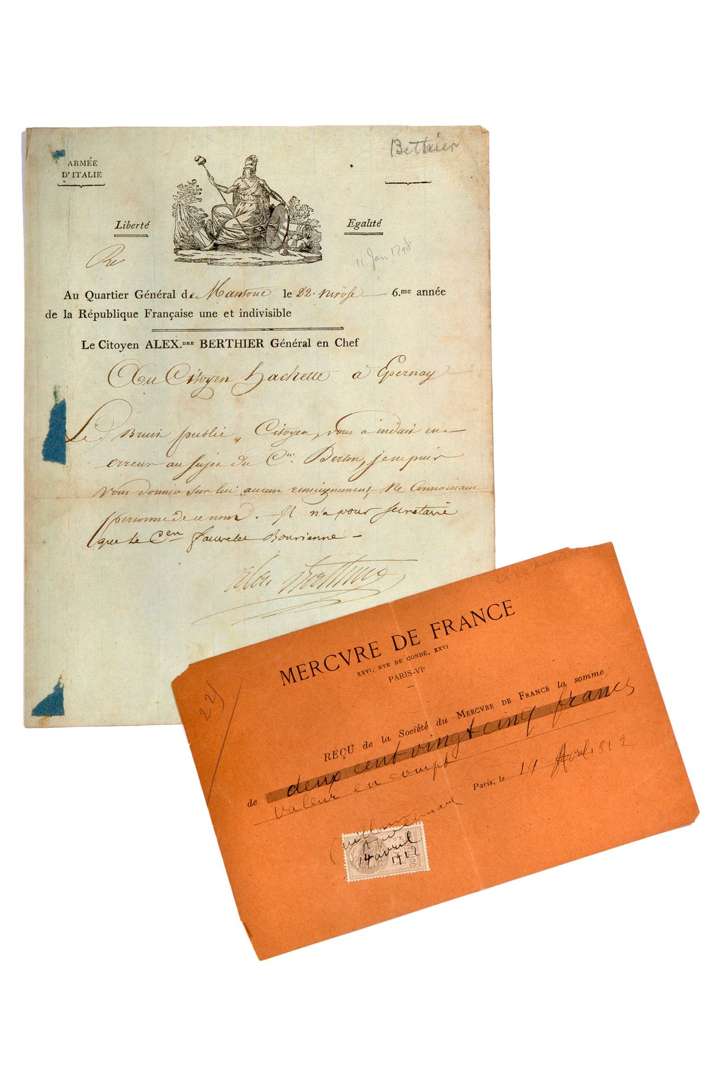 ARMÉE
D'ITALIE
Berthier
Liberté
Egalité
11 Jan 1798
Au Quartier Général de Mantoue le 22 nivôse 6.me année
de la République Française une et indivisible
Le Citoyen ALEX.DRE BERTHIER Général en Chef
Au Citoyen hachette à Epernay
Le Bruit public, Citoyen, vous a induit en
erreur au sujet du C.en Berton, je ne puis
vous donner sur lui aucun renseignement, Ne Connoissant
personne de ce nom. Il n'a pour secrétaire
que le Cen fauvelet Bourienne
alex Berthier
22)
MERCVRE DE FRANCE
XXVI, RVE DE CONDÉ, XXVI
PARIS-VIe
REÇU de la Société du MERCVRE DE FRANCE la somme
de deux cent vingt cinq francs
valeur en compte
Paris, le 14 Avril 1912
14 avril
1912